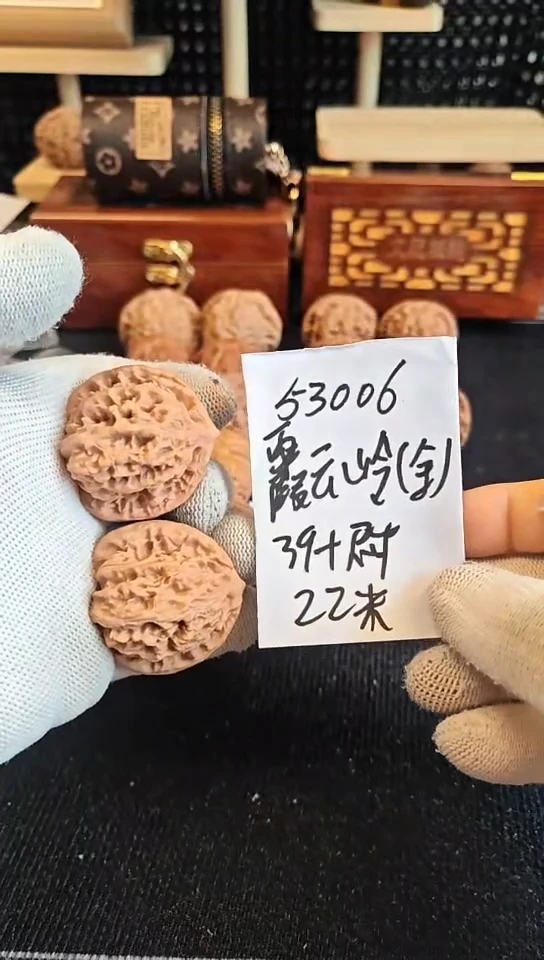 53006
霞云岭(全)
39+尉
22米